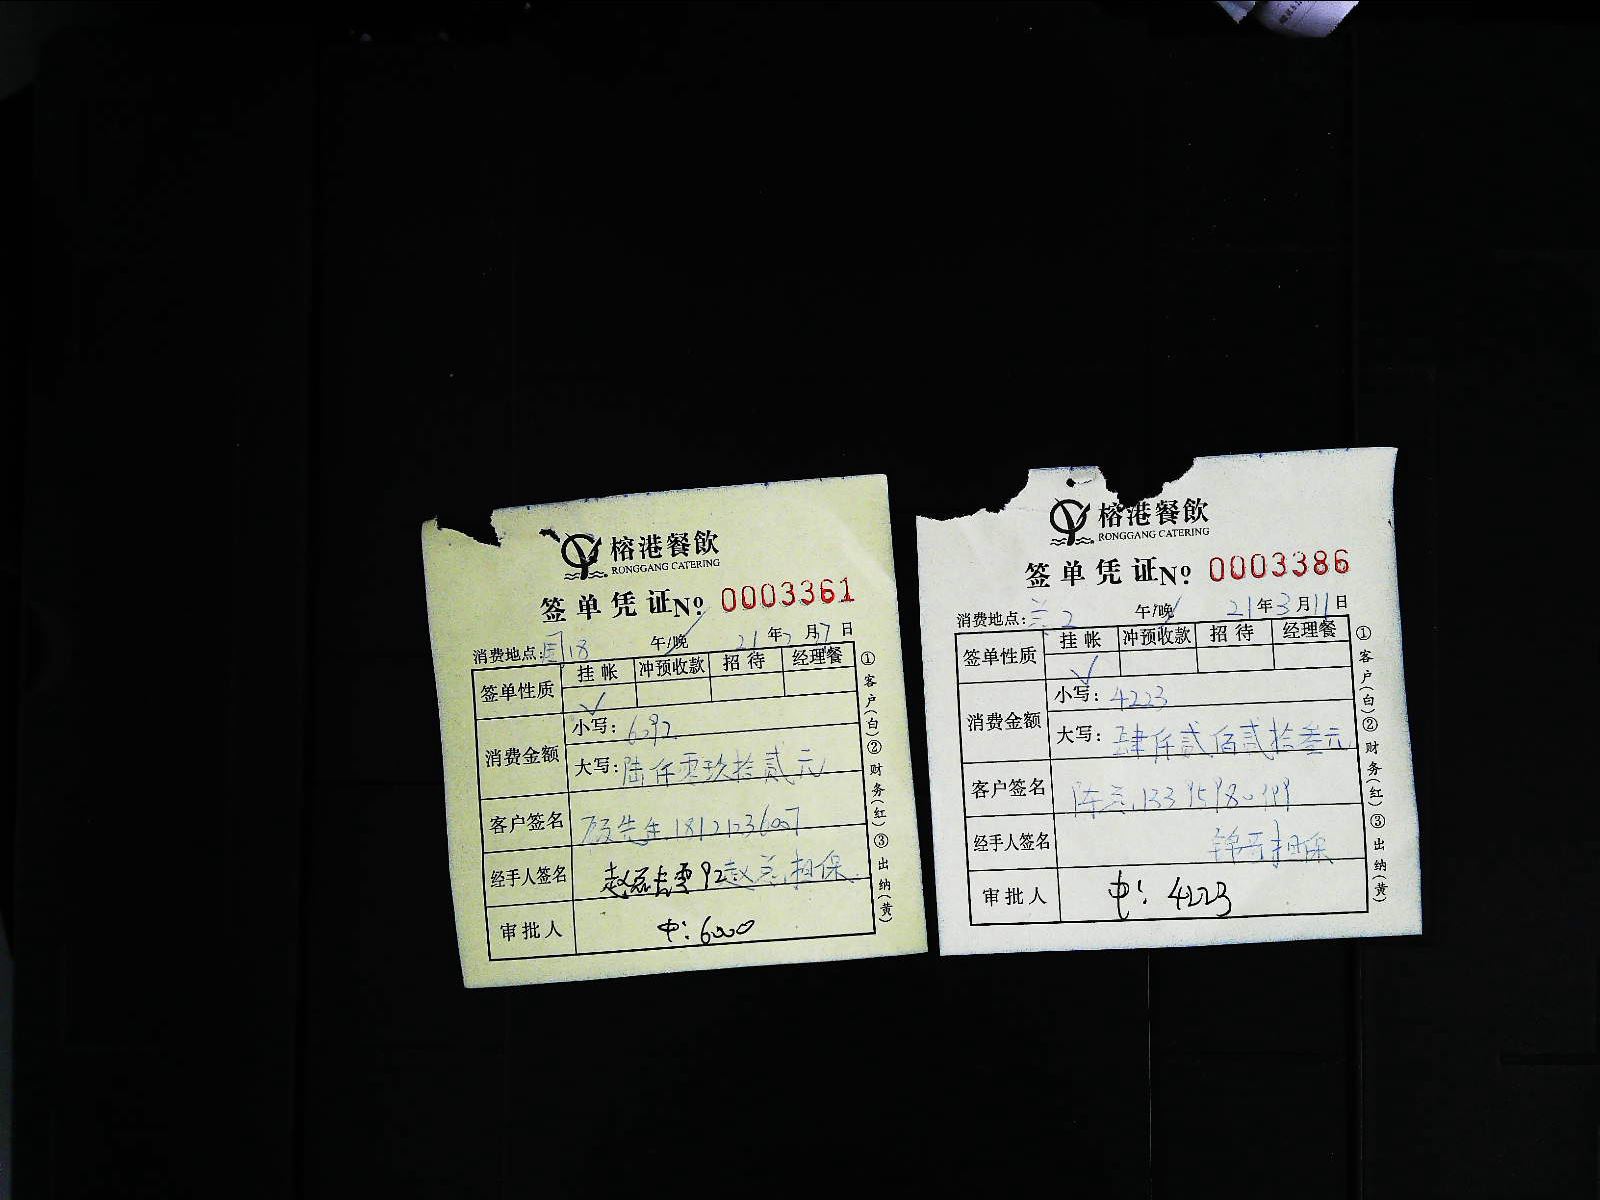 榕港餐飲
RONGGANG CATERING
签单凭证 No 0003361
消费地点: 18 午/晚 21年 月 7日
签单性质 挂帐 冲预收款 招待 经理餐
✓
消费金额 小写: 6092
大写: 陆仟零玖拾贰元
客户签名 顾先生 18121236007
经手人签名 赵总去零92 赵总担保
审批人 中: 6000
①客户(白)②财务(红)③出纳(黄)
榕港餐飲
RONGGANG CATERING
签单凭证 No 0003386
消费地点: 兰2 午/晚 21年3月11日
签单性质 挂帐 冲预收款 招待 经理餐
✓
消费金额 小写: 4223
大写: 肆仟贰佰贰拾叁元
客户签名 陈总
经手人签名 锦哥担保
审批人 中: 4223
①客户(白)②财务(红)③出纳(黄)